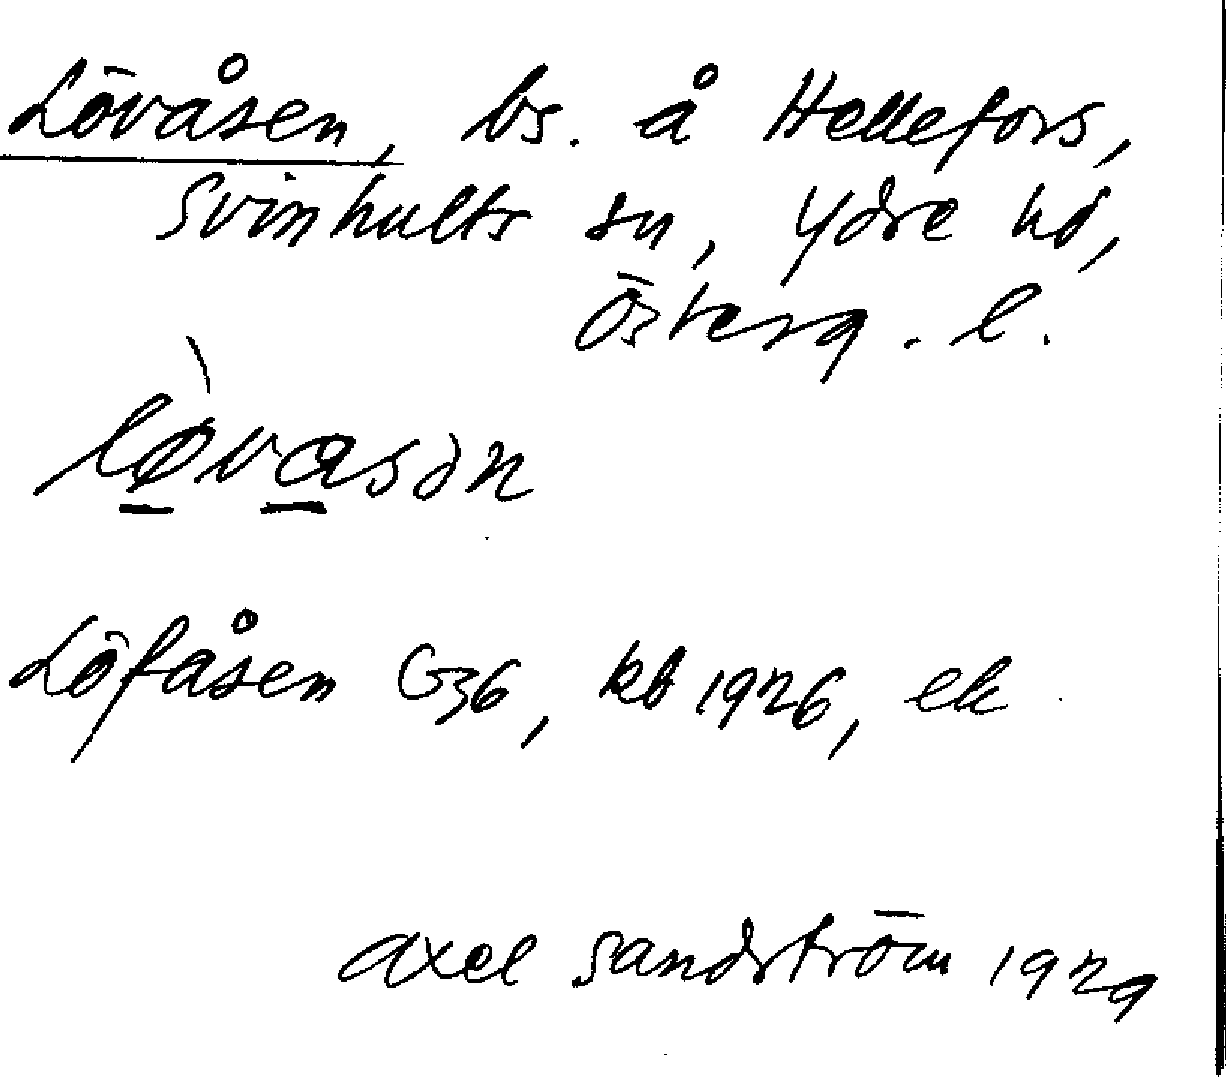 Lövåsen, bs. å Hellefors,
Svinhults sn, Ydre hd,
Österg. l.
Löfåsen G36, kb 1926, ek
Axel Sandström 1929